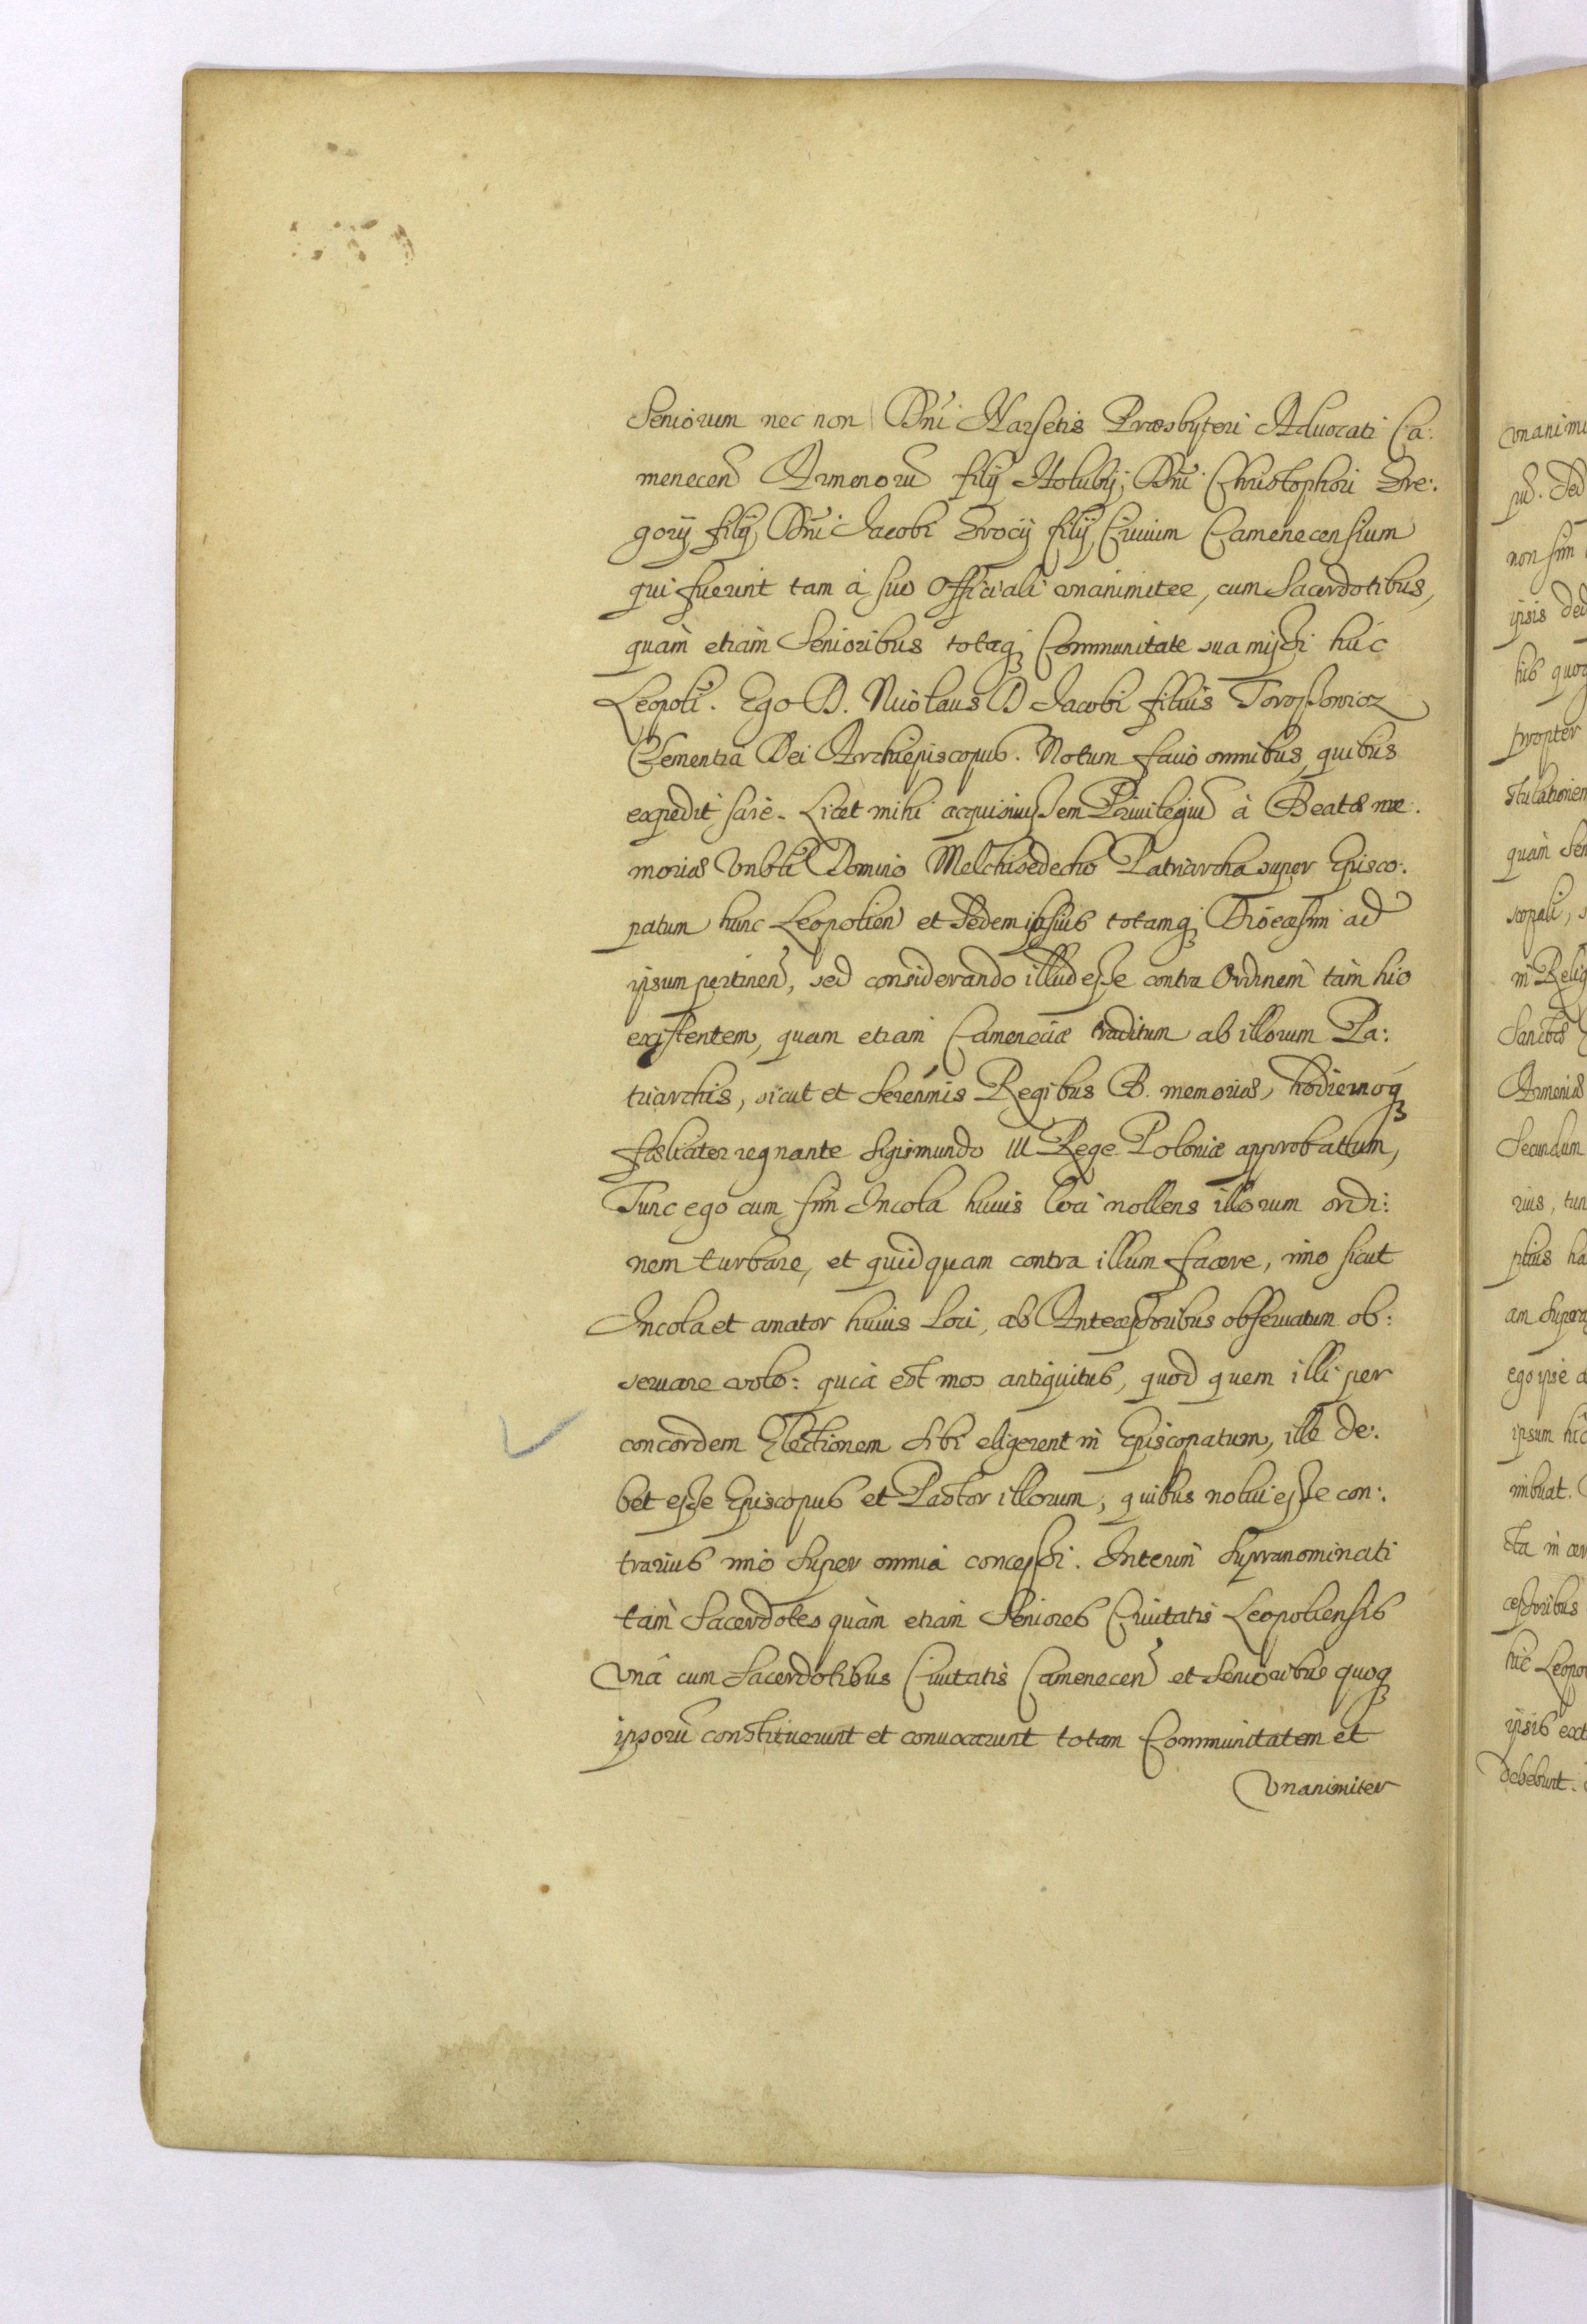 Seniorum nec non Dni Narsetis Præsbyteri Aduocati Ca:
menecen Armenorū filij Holubij, Dni Christophori Gre:
gorij filij, Dni Jacobi Grocij filij, Ciuium Camenecensium
qui fuerint tam à suo Officiali vnanimiter, cum Sacerdotibus,
quàm etiàm Senioribus totaq; Communitate sua missi húc
Leopoli. Ego D. Nicolaus D Jacobi filius Torossowicz
Clementia Dei Archiepiscopus. Notum facio omnibus, quibus
expedit scire. Licet mihi acquisiuissem Priuilegiū à Beatæ me:
moriæ Domino Melchisedecho Patriarcha super Episco:
patum hunc Leopolien et Sedem ipsius totamq; Diœcesim ad
ipsum pertinen, sed considerando illud esse contra Ordinem tàm hic
existentem, quam etiam Cameneciæ traditum ab illorum Pa:
triarchis, sicut et Serenmis Regibus B. memoriæ, hodiernoq;
fœliciter regnante Sigismundo III Rege Poloniæ approbatum,
Tunc ego cum sim Incola huius loci nollens illorum ordi:
nem turbare, et quidquam contra illum facere, imo sicut
Incola et amator huius Loci, ab Antecessoribus obseruatum ob:
seruare volo: quia est mos antiquitus, quod quem illi per
concordem Electionem sibi eligerent in Episcopatum, ille de:
bet esse Episcopus et Pastor illorum, quibus nolui esse con:
trarius imo super omnia concessi. Interim supranominati
tàm Sacerdotes quàm etiam Seniores Ciuitatis Leopoliensis
Vnâ cum Sacerdotibus Ciuitatis Camenecen et Senioribus quoq;
ipsorū constituerunt et conuocarunt totam Communitatem et
Vnanimiter